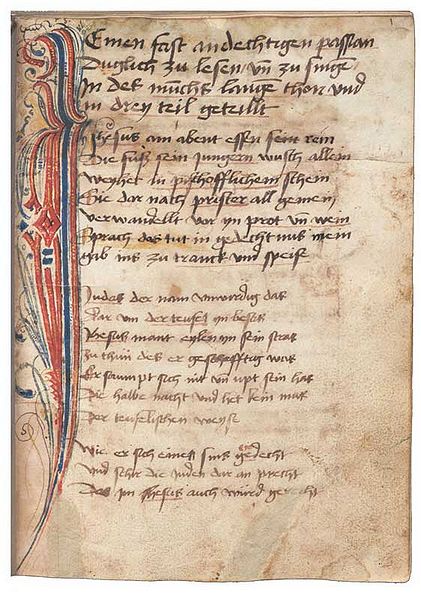 Einen fast andechtigen passian
Duglich zu lesen vn̄ zu singē
In des munchs lange thon vnd
in drey teil geteillt
Ihesus am abent essen seint rein
Die füß sein jungern wusch allein
Weyhet sú pischofflichem schein
Sie dar nach prister all gemein
verwandellt vor ym prot vn̄ wein
Sprach das tut in gedechtnus mein
gab ins zu tranck vnd speiß
Judas der nam vnwirdig das
Gar vm der teufel yn besas
Ihesus mant eylen yn sein stras
zu thun des er geschefftig was
Er saumpt sich nit vn̄ vpt sein has
Die halbe nacht vnd het kein mas
Der teufelischen weyse
Wie er sich eines sins gedecht
vnd schir die juden dar an precht
Das ym ihesus auch wurd gerecht